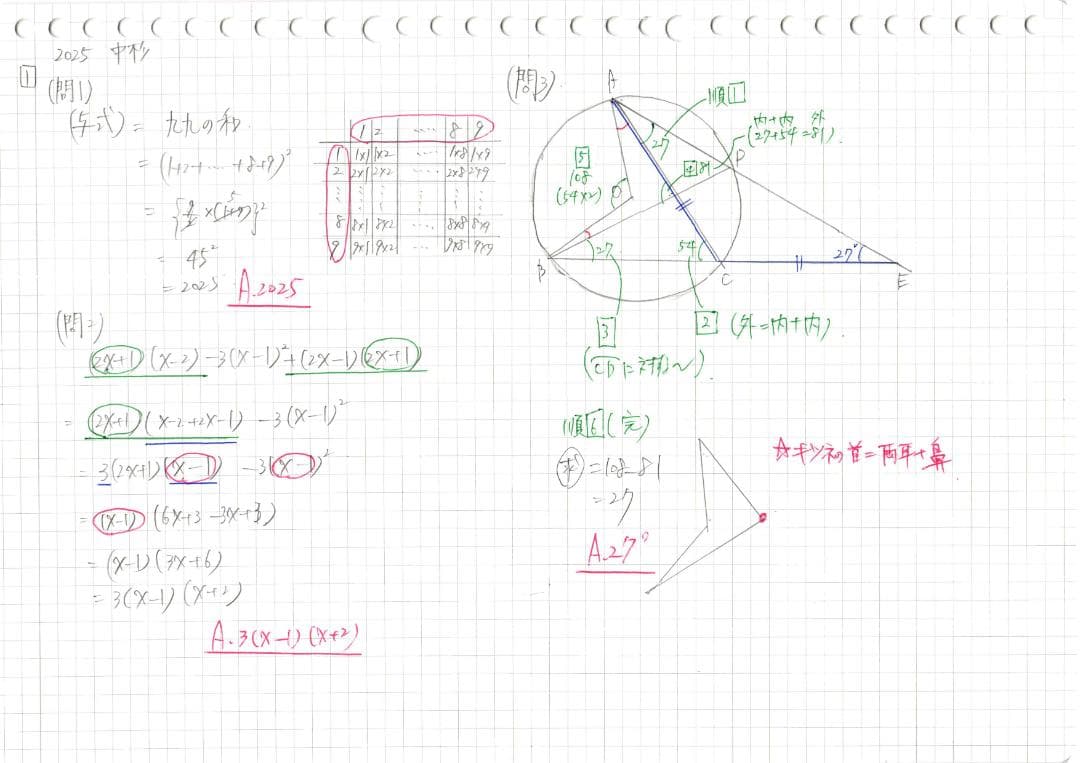 2025 中杉
1
(問1)
(与式) = 九九の和
= (1+2+‥‥+8+9)²
= 45²
= 2025
A.2025
1 2 ‥‥ 8 9
1 1×1 1×2 ‥‥ 1×8 1×9
2 2×1 2×2 ‥‥ 2×8 2×9
8 8×1 8×2 ‥‥ 8×8 8×9
9 9×1 9×2 ‥‥ 9×8 9×9
(問2)
(2x+1)(x-2)-3(x-1)²+(2x-1)(2x+1)
= (2x+1)(x-2+2x-1) -3(x-1)²
= 3(2x+1)(x-1) -3(x-1)²
= (x-1)(6x+3-3x+3)
= (x-1)(3x+6)
= 3(x-1)(x+2)
A.3(x-1)(x+2)
(問3)
A
順1
27
内+内 外
(27+54=81)
D
4 81
5
108
(54×2)
O
B
27
54
C
27°
E
3
(CDに対する~)
2 (外=内+内)
順6(完)
求=108-81
=27
A.27°
☆キツネの首=両耳+鼻